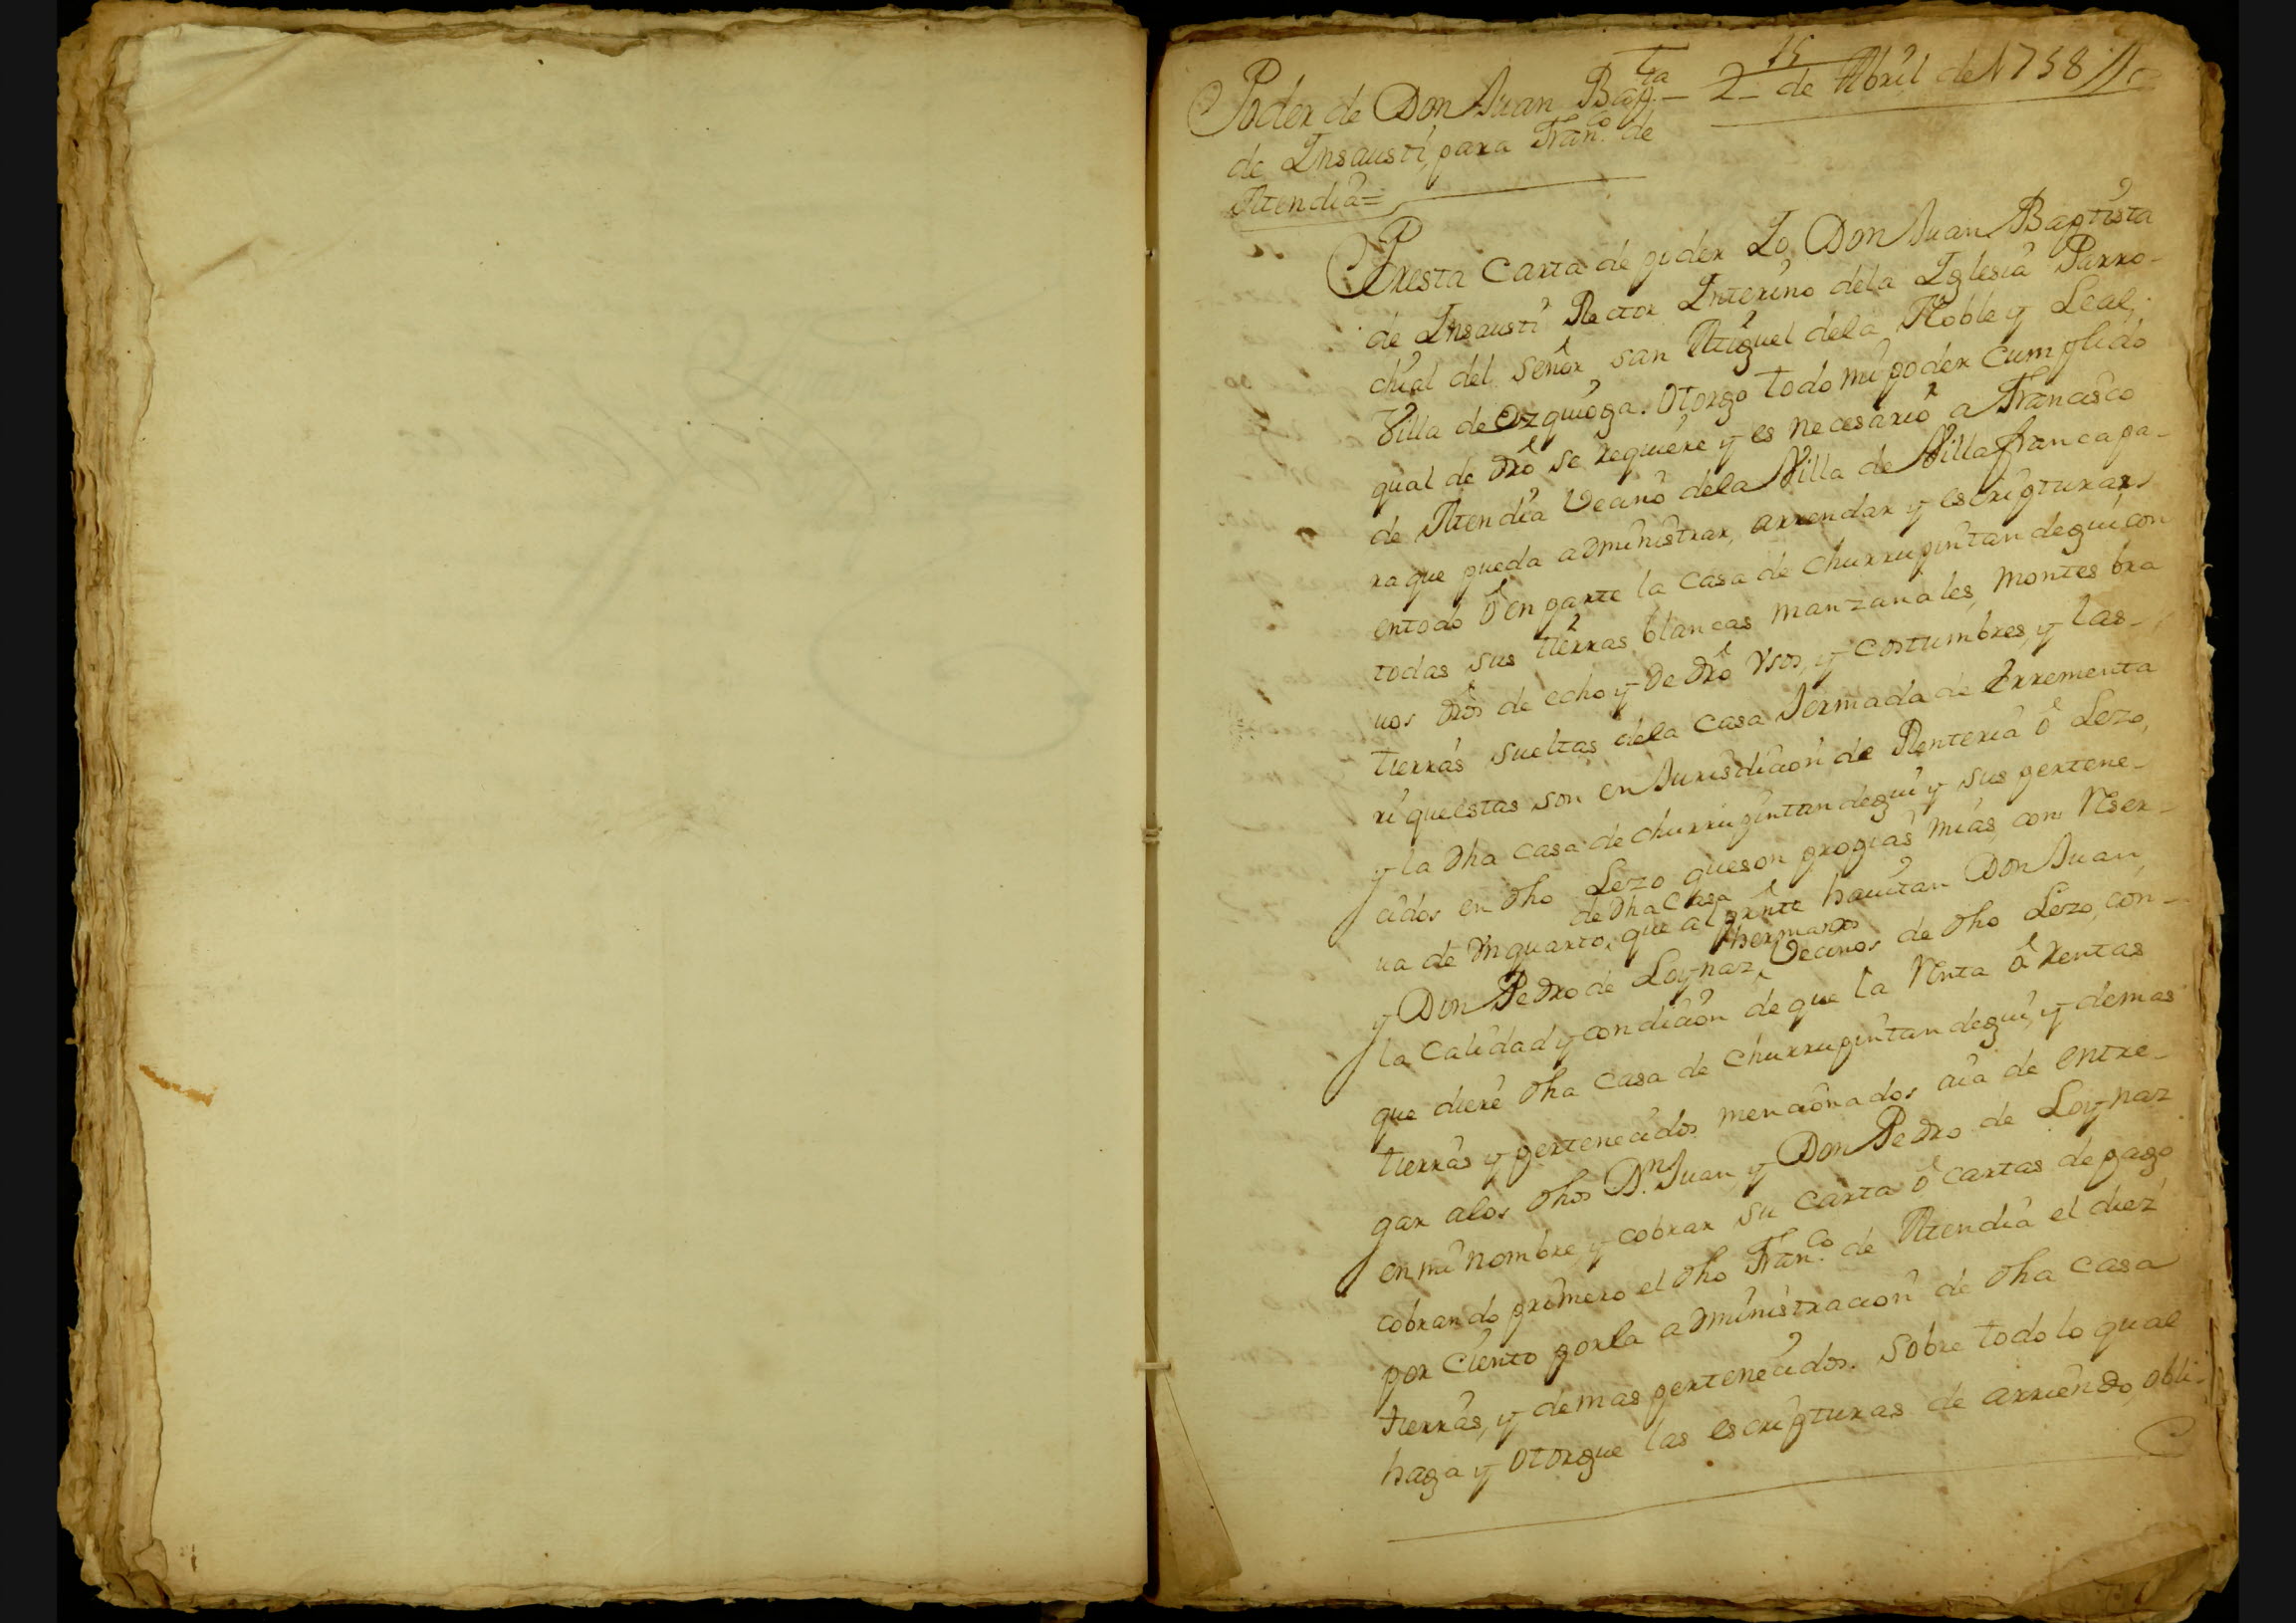 Poder de Don Juan Bap.ta
de Insausti, para Fran.co de
Atendia=
15
2 de Abril de 1758
Por esta Carta de poder Yo Don Juan Baptista
de Insausti Rector Interino dela Iglesia Parro-
chial del señor san Miguel dela Noble y Leal,
Villa de Ozquioga. Otorgo todo mi poder Cumplido
qual de dro se requiere y es necesario a Francisco
de Atendia Vecino dela Villa de Villafranca pa-
ra que pueda administrar, arrendar y escripturar
entodo ô en parte la casa de churrupintandegui con
todas sus tierras blancas manzanales, montes bra
uos dros de echo y de dro Vsos, y costumbres, y las
tierras sueltas dela casa Jermada de Errementa
ri que estas son en Jurisdicion de Renteria ô Lezo,
y la dha casa de churrupintandegui y sus pertene-
cidos en dho Lezo que son propias mias con Reser-
ua de Vn quarto, de dha Casa que al preste hauitan Don Juan,
y Don Pedro de Loynaz, hermanos Vecinos de dho Lezo, con
la Calidad y condicion de que la Renta ô Rentas
que diere dha casa de churrupintandegui, y demas
tierras y pertenecidos mencionados aia de entre-
gar alos dhos D.n Juan y Don Pedro de Loynaz
en mi nombre, y cobrar su carta ô cartas de pago
cobrando primero el dho Fran.co de Atendia el diez
por Ciento por la administracion de dha casa
tierras, y demas pertenecidos. Sobre todo lo qual
haga y otorgue las escripturas de arriendo, obli-